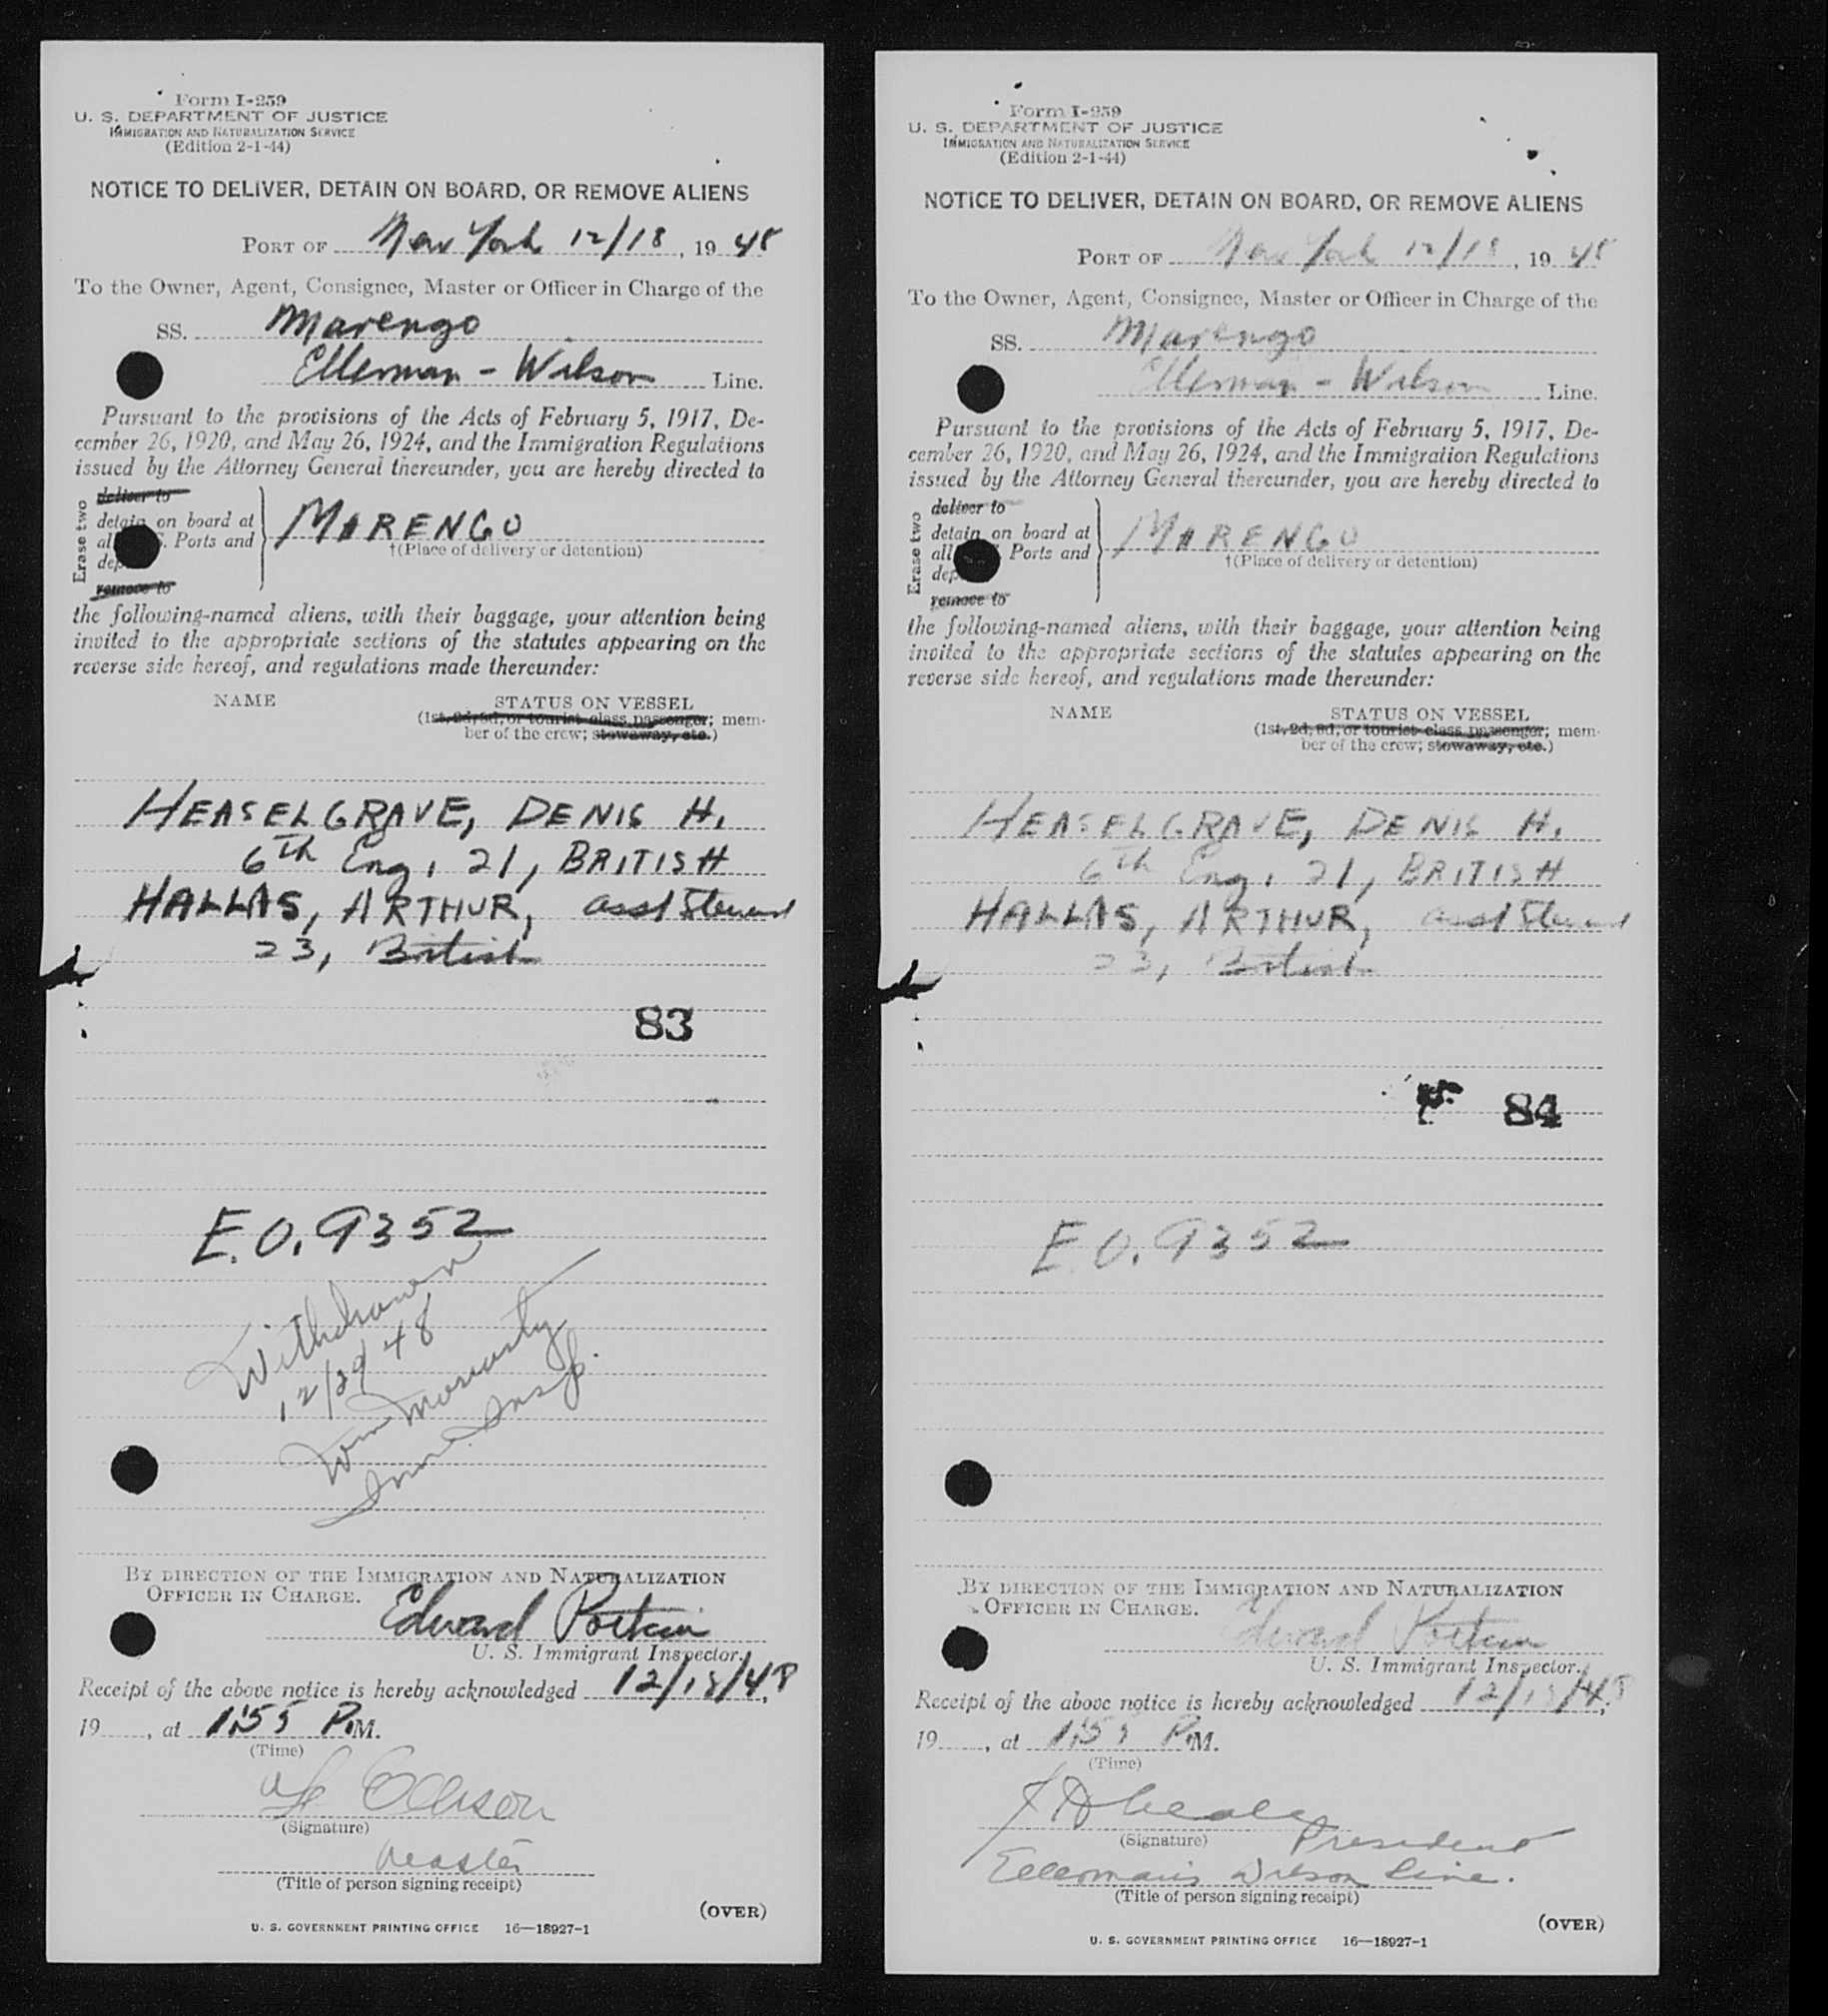 Form I-259
U. S. DEPARTMENT OF JUSTICE
IMMIGRATION AND NATURALIZATION SERVICE
(Edition 2-1-44)
NOTICE TO DELIVER, DETAIN ON BOARD, OR REMOVE ALIENS
PORT OF New York 12/18, 19 48
To the Owner, Agent, Consignee, Master or Officer in Charge of the
SS. Marengo
Ellerman - Wilson Line.
Pursuant to the provisions of the Acts of February 5, 1917, De-
cember 26, 1920, and May 26, 1924, and the Immigration Regulations
issued by the Attorney General thereunder, you are hereby directed to
Erase two
deliver to
detain on board at
all Ports and
dep
remove to
MARENGO
†(Place of delivery or detention)
the following-named aliens, with their baggage, your attention being
invited to the appropriate sections of the statutes appearing on the
reverse side hereof, and regulations made thereunder:
NAME STATUS ON VESSEL
(1st, 2d, 3d, or tourist class passenger; mem-
ber of the crew; stowaway, etc.)
HEASELGRAVE, DENIS H.
6th Eng, 21, BRITISH
HALLAS, ARTHUR, asst Steward
23, British
83
E.O. 9352
Withdrawn
12/29/48
Wm Moriarty
Imm. Insp.
BY DIRECTION OF THE IMMIGRATION AND NATURALIZATION
OFFICER IN CHARGE.
Edward
U. S. Immigrant Inspector.
Receipt of the above notice is hereby acknowledged 12/18/48,
19 , at 1:55 P.M.
(Time)
(Signature)
Master
(Title of person signing receipt)
(OVER)
U. S. GOVERNMENT PRINTING OFFICE 16—18927-1
Form I-259
U. S. DEPARTMENT OF JUSTICE
IMMIGRATION AND NATURALIZATION SERVICE
(Edition 2-1-44)
NOTICE TO DELIVER, DETAIN ON BOARD, OR REMOVE ALIENS
PORT OF New York 12/18, 19 48
To the Owner, Agent, Consignee, Master or Officer in Charge of the
SS. Marengo
Ellerman - Wilson Line.
Pursuant to the provisions of the Acts of February 5, 1917, De-
cember 26, 1920, and May 26, 1924, and the Immigration Regulations
issued by the Attorney General thereunder, you are hereby directed to
Erase two
deliver to
detain on board at
all Ports and
dep
remove to
MARENGO
†(Place of delivery or detention)
the following-named aliens, with their baggage, your attention being
invited to the appropriate sections of the statutes appearing on the
reverse side hereof, and regulations made thereunder:
NAME STATUS ON VESSEL
(1st, 2d, 3d, or tourist class passenger; mem-
ber of the crew; stowaway, etc.)
HEASELGRAVE, DENIS H.
6th Eng, 21, BRITISH
HALLAS, ARTHUR, asst Steward
23, British
84
E.O. 9352
BY DIRECTION OF THE IMMIGRATION AND NATURALIZATION
OFFICER IN CHARGE.
Edward
U. S. Immigrant Inspector.
Receipt of the above notice is hereby acknowledged 12/18/48,
19 , at 1:55 P.M.
(Time)
(Signature) President
Ellerman's Wilson Line.
(Title of person signing receipt)
(OVER)
U. S. GOVERNMENT PRINTING OFFICE 16—18927-1